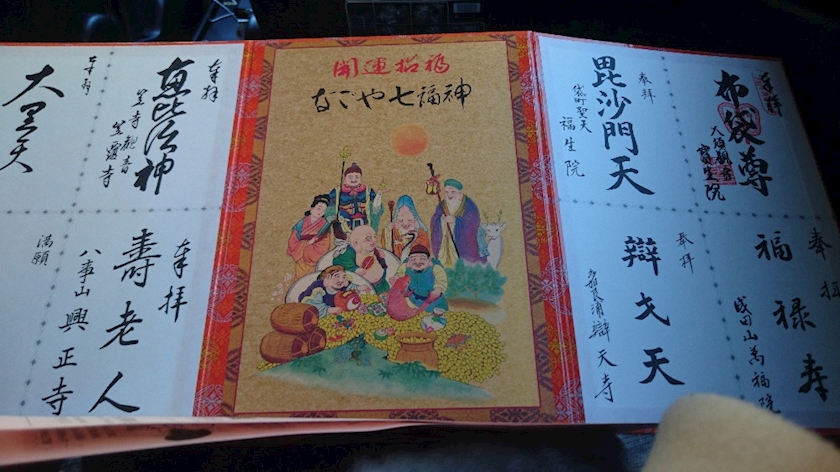 開運招福
なごや七福神
奉拝
布袋尊
大須観音
寳生院
奉拝
毘沙門天
袋町聖天
福生院
奉拝
福禄寿
成田山萬福院
奉拝
辯才天
辯天寺
奉拝
恵比須神
笠寺観音
笠覆寺
大黒天
奉拝
壽老人
八事山
興正寺
満願